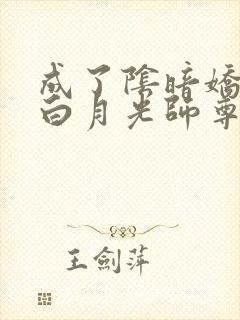 成了陰暗嬌
白月光師尊
王劍萍